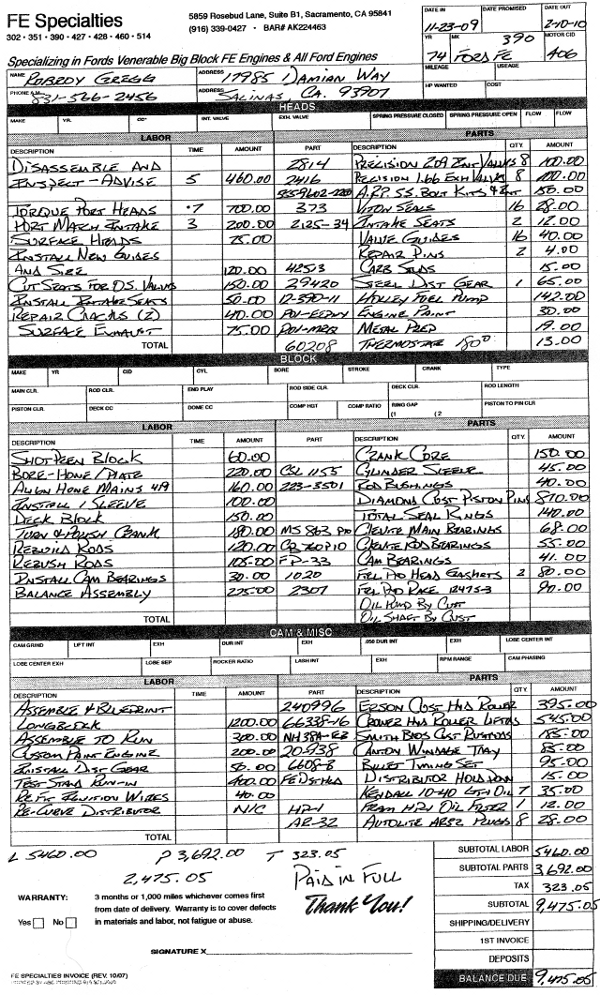 FE Specialties
302 • 351 • 390 • 427 • 428 • 460 • 514
5859 Rosebud Lane, Suite B1, Sacramento, CA 95841
(916) 339-0427 • BAR# AK224463
Specializing in Fords Venerable Big Block FE Engines & All Ford Engines
DATE IN 11-23-09 DATE PROMISED DATE OUT 2-10-10
YR. MK 390 MOTOR CID
74 FORD FE 406
MILEAGE USEAGE
HP WANTED COST
NAME GREGG ADDRESS 17985 DAMIAN WAY
PHONE A.M. 831-566-2456 ADDRESS SALINAS, CA. 93907
HEADS
MAKE YR. CC" INT. VALVE EXH. VALVE SPRING PRESSURE CLOSED SPRING PRESSURE OPEN FLOW FLOW
LABOR PARTS
DESCRIPTION TIME AMOUNT PART DESCRIPTION QTY. AMOUNT
DISASSEMBLE AND 2814 PRECISION 2.09 INT VALVES 8 100.00
INSPECT - ADVISE 5 460.00 2416 PRECISION 1.66 EXH VALVES 8 100.00
A.R.P. SS. BOLT KITS 150.00
TORQUE PORT HEADS .7 700.00 373 VITON SEALS 16 28.00
PORT MATCH INTAKE 3 200.00 2125-34 INTAKE SEATS 2 12.00
SURFACE HEADS 75.00 VALVE GUIDES 16 40.00
INSTALL NEW GUIDES REPAIR PINS 2 4.00
AND SIZE 120.00 42513 CARB STUDS 15.00
CUT SEATS FOR O.S. VALVES 150.00 29420 STEEL DIST GEAR 1 65.00
INSTALL INTAKE SEATS 50.00 12-390-11 HOLLEY FUEL PUMP 142.00
REPAIR CRACKS (2) 40.00 ENGINE PAINT 30.00
SURFACE EXHAUST 75.00 METAL PREP 19.00
TOTAL 60208 THERMOSTAT 180° 13.00
BLOCK
MAKE YR CID CYL BORE STROKE CRANK TYPE
MAIN CLR. ROD CLR. END PLAY ROD SIDE CLR. DECK CLR. ROD LENGTH
PISTON CLR. DECK CC DOME CC COMP HGT COMP RATIO RING GAP (1 (2 PISTON TO PIN CLR
LABOR PARTS
DESCRIPTION TIME AMOUNT PART DESCRIPTION QTY. AMOUNT
SHOTPEEN BLOCK 60.00 CRANK CORE 150.00
BORE-HONE/PLATE 220.00 CSL 1155 CYLINDER SLEEVE 45.00
ALIGN HONE MAINS 160.00 223-3501 ROD BUSHINGS 40.00
INSTALL 1 SLEEVE 100.00 DIAMOND CUST PISTON PINS 870.00
DECK BLOCK 150.00 TOTAL SEAL RINGS 140.00
TURN & POLISH CRANK 180.00 MS 863 P10 CLEVITE MAIN BEARINGS 68.00
REBUILD RODS 120.00 CB 760P10 CLEVITE ROD BEARINGS 55.00
REBUSH RODS 105.00 FP-33 CAM BEARINGS 41.00
INSTALL CAM BEARINGS 30.00 1020 FEL PRO HEAD GASKETS 2 80.00
BALANCE ASSEMBLY 225.00 2307 FEL PRO RACE 12475-3 90.00
OIL PUMP BY CUST
TOTAL OIL SHAFT BY CUST
CAM & MISC
CAM GRIND LIFT INT EXH DUR INT EXH .050 DUR INT EXH LOBE CENTER INT
LOBE CENTER EXH LOBE SEP ROCKER RATIO LASH INT EXH RPM RANGE CAM PHASING
LABOR PARTS
DESCRIPTION TIME AMOUNT PART DESCRIPTION QTY AMOUNT
ASSEMBLE & BLUEPRINT 240996 ERSON CUST HYD ROLLER 395.00
LONGBLOCK 1200.00 66338-16 CROWER HYD ROLLER LIFTERS 545.00
ASSEMBLE TO RUN 300.00 SMITH BROS CUST PUSHRODS 185.00
CUSTOM PAINT ENGINE 200.00 20-938 CANTON WINDAGE TRAY 85.00
INSTALL DIST GEAR 50.00 6608-8 BILLET TIMING SET 95.00
TEST STAND RUN-IN 400.00 DISTRIBUTOR HOLD DOWN 15.00
REFIT IGNITION WIRES 40.00 KENDALL 10-40 GT-1 OIL 7 35.00
RE-CURVE DISTRIBUTOR N/C HP-1 FRAM HP-1 OIL FILTER 1 12.00
AR-32 AUTOLITE AR32 PLUGS 8 28.00
TOTAL
L 5460.00 P 3,692.00 T 323.05
2,475.05 PAID IN FULL
SUBTOTAL LABOR 5460.00
SUBTOTAL PARTS 3,692.00
TAX 323.05
SUBTOTAL 9,475.05
SHIPPING/DELIVERY
1ST INVOICE
DEPOSITS
BALANCE DUE 9,475.05
WARRANTY: 3 months or 1,000 miles whichever comes first
from date of delivery. Warranty is to cover defects
Yes No in materials and labor, not fatigue or abuse.
Thank You!
SIGNATURE X
FE SPECIALTIES INVOICE (REV. 10/07)